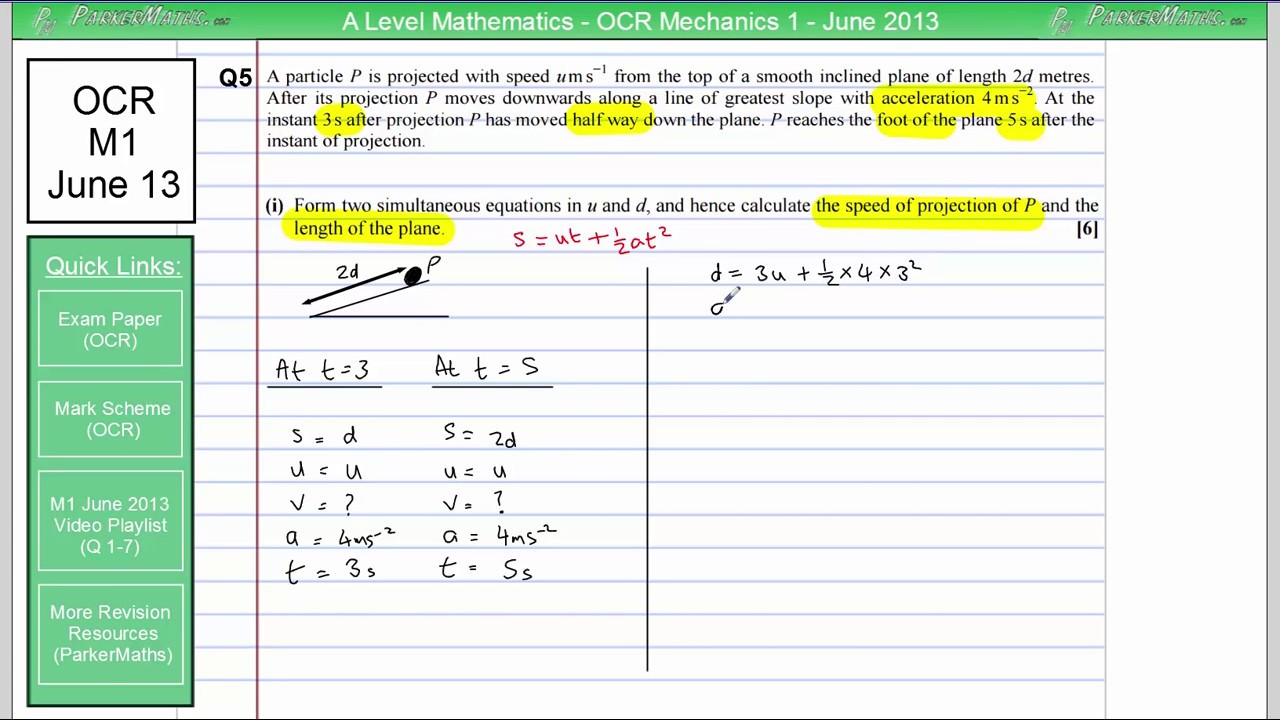 PARKERMATHS.COM
A Level Mathematics - OCR Mechanics 1 - June 2013
PARKERMATHS.COM
OCR
M1
June 13
Quick Links:
Exam Paper
(OCR)
Mark Scheme
(OCR)
M1 June 2013
Video Playlist
(Q 1-7)
More Revision
Resources
(ParkerMaths)
Q5 A particle P is projected with speed u m s⁻¹ from the top of a smooth inclined plane of length 2d metres.
After its projection P moves downwards along a line of greatest slope with acceleration 4 m s⁻². At the
instant 3 s after projection P has moved half way down the plane. P reaches the foot of the plane 5 s after the
instant of projection.
(i) Form two simultaneous equations in u and d, and hence calculate the speed of projection of P and the
length of the plane. [6]
s = ut + ½at²
2d P
At t = 3
s = d
u = u
v = ?
a = 4ms⁻²
t = 3s
At t = 5
s = 2d
u = u
v = ?
a = 4ms⁻²
t = 5s
d = 3u + ½ × 4 × 3²